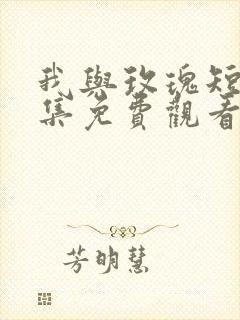 我與玫瑰短
集免費觀看
芳明慧